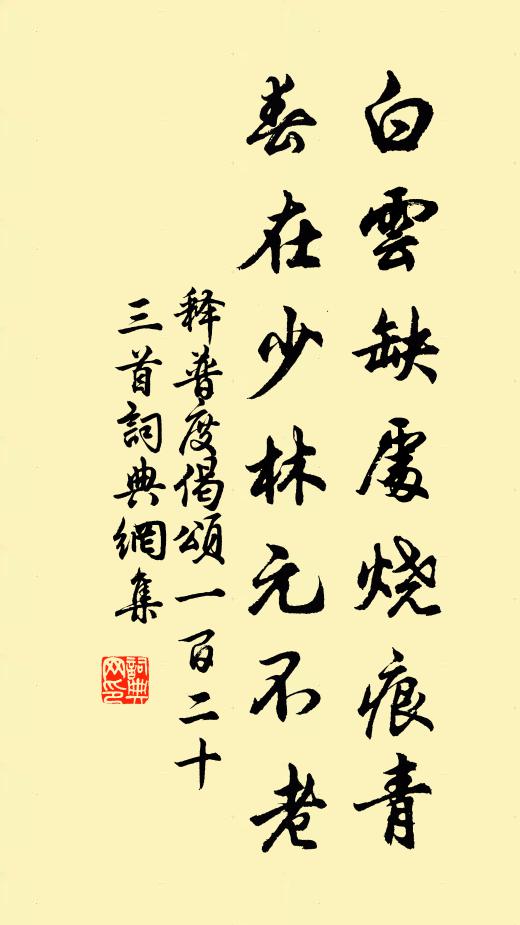 白雲缺處烧痕青
春在少林元不老
释普度偈頌一百二十
三首詞典網集
詞典网印